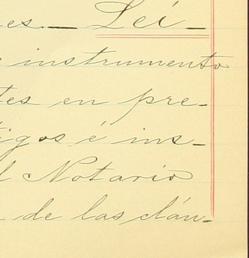 es. — Leí —
instrumento
tes en pre-
tigos é ins-
l Notario
de las cláu-